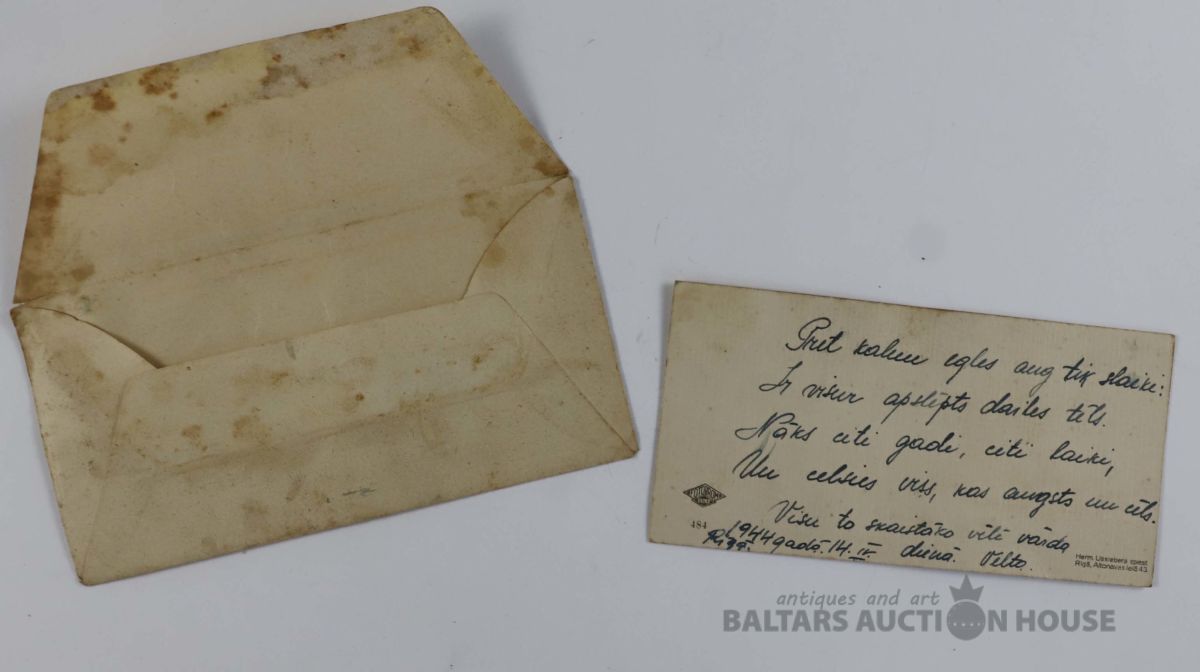 Pret kalnu egles aug tik slaiki:
Ir visur apslēpts dailes tēls.
Nāks citi gadi, citi laiki,
Un celsies viss, kas augsts un cēls.
Visu to skaistāko vēlē vārda
1944 gadā. 14. IV. dienā. Velta.
Rīgā.
484
Rīgā, Altonavas ielā 43.
antiques and art
BALTARS AUCTION HOUSE